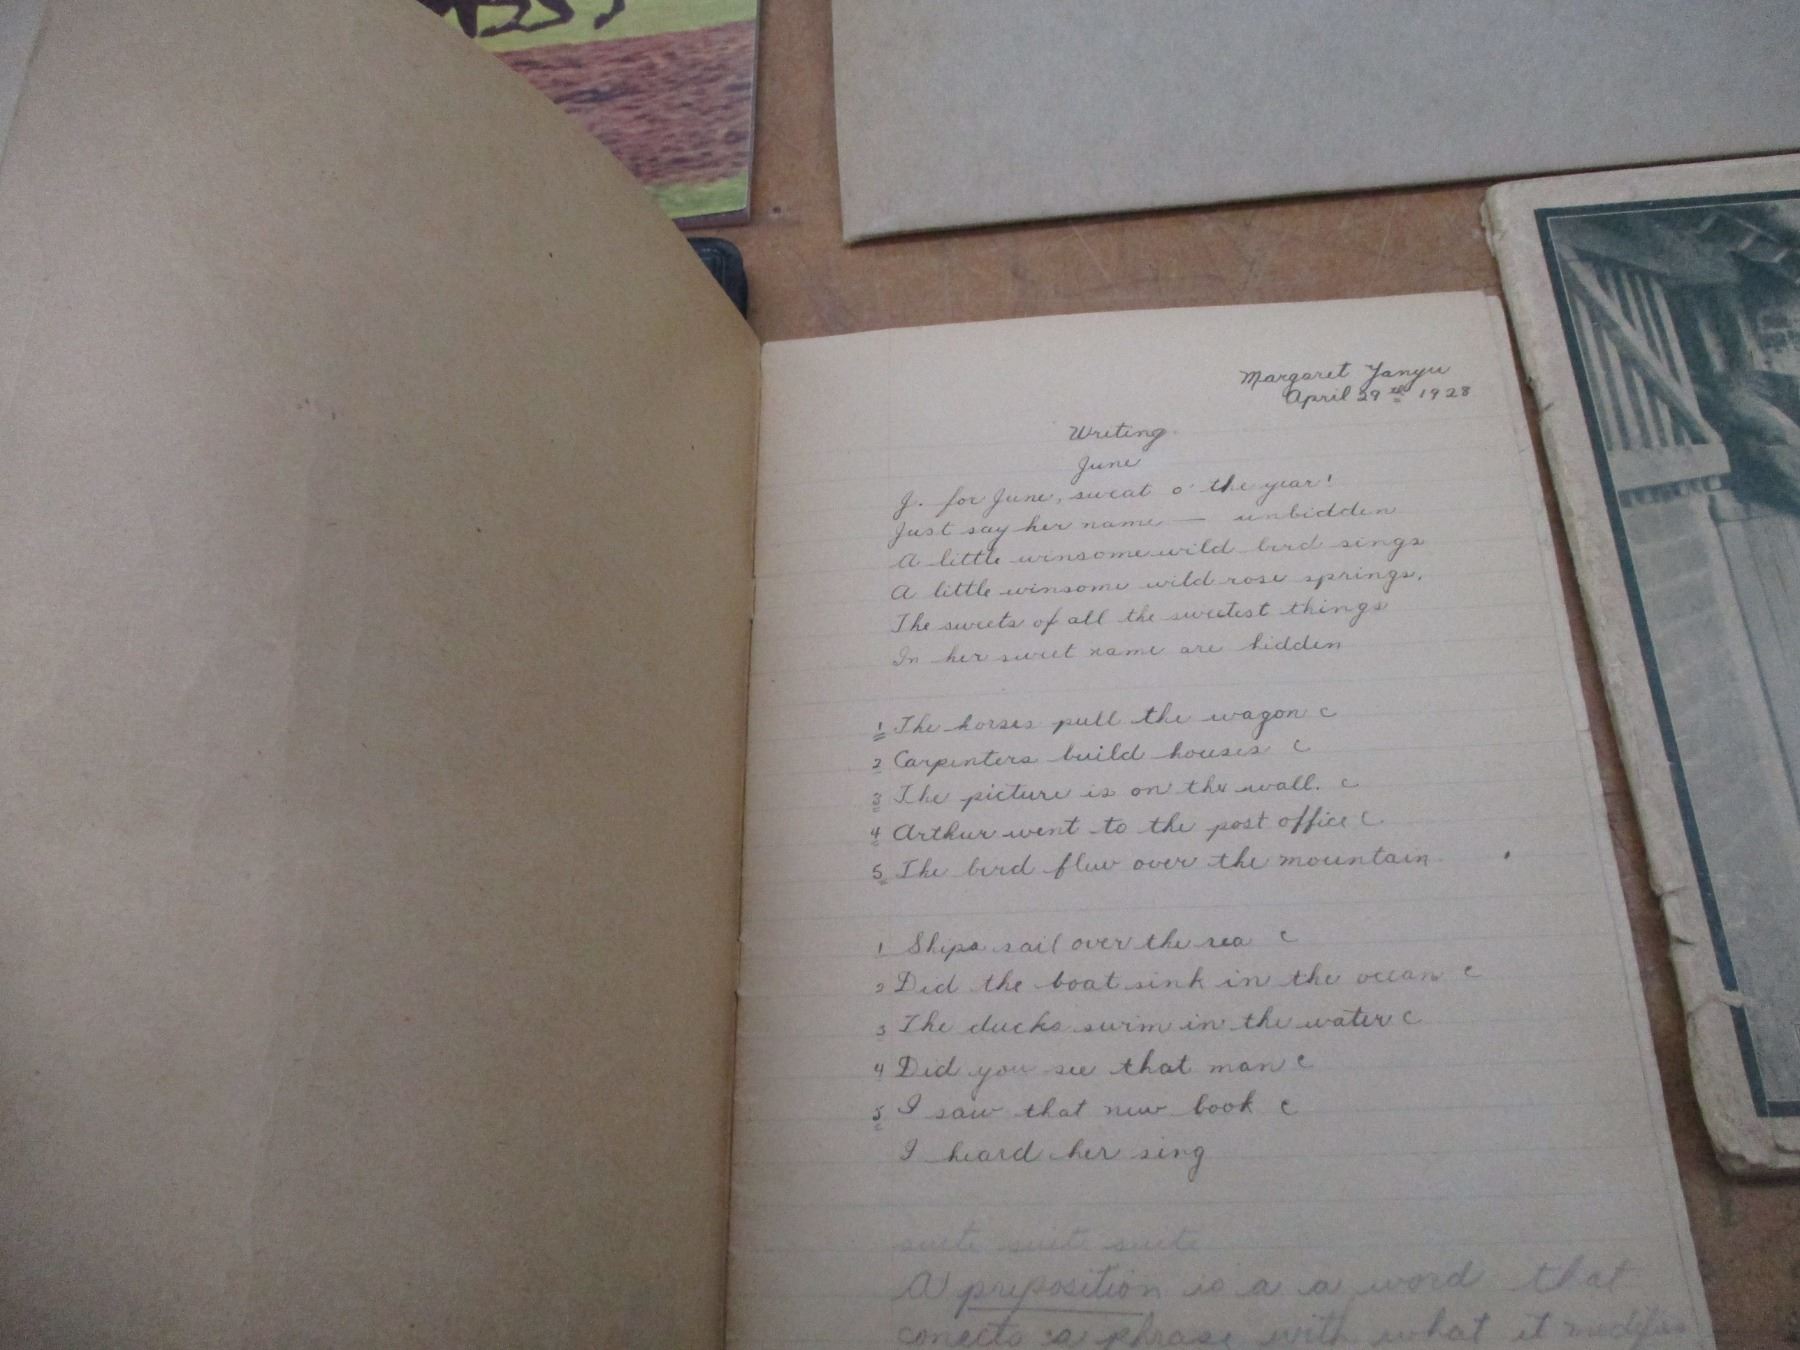 Margaret Yanyu
April 29th 1928
Writing
June
J. for June, sweat o' the year!
Just say her name — unbidden
A little winsome wild bird sings
A little winsome wild rose springs,
The sweets of all the sweetest things
In her sweet name are hidden
1 The horses pull the wagon c
2 Carpenters build houses c
3 The picture is on the wall. c
4 Arthur went to the post office c
5 The bird flew over the mountain
1 Ships sail over the sea c
2 Did the boat sink in the ocean c
3 The ducks swim in the water c
4 Did you see that man c
5 I saw that new book c
I heard her sing
suite suite suite
A preposition is a a word that
conects a phrase with what it modifies